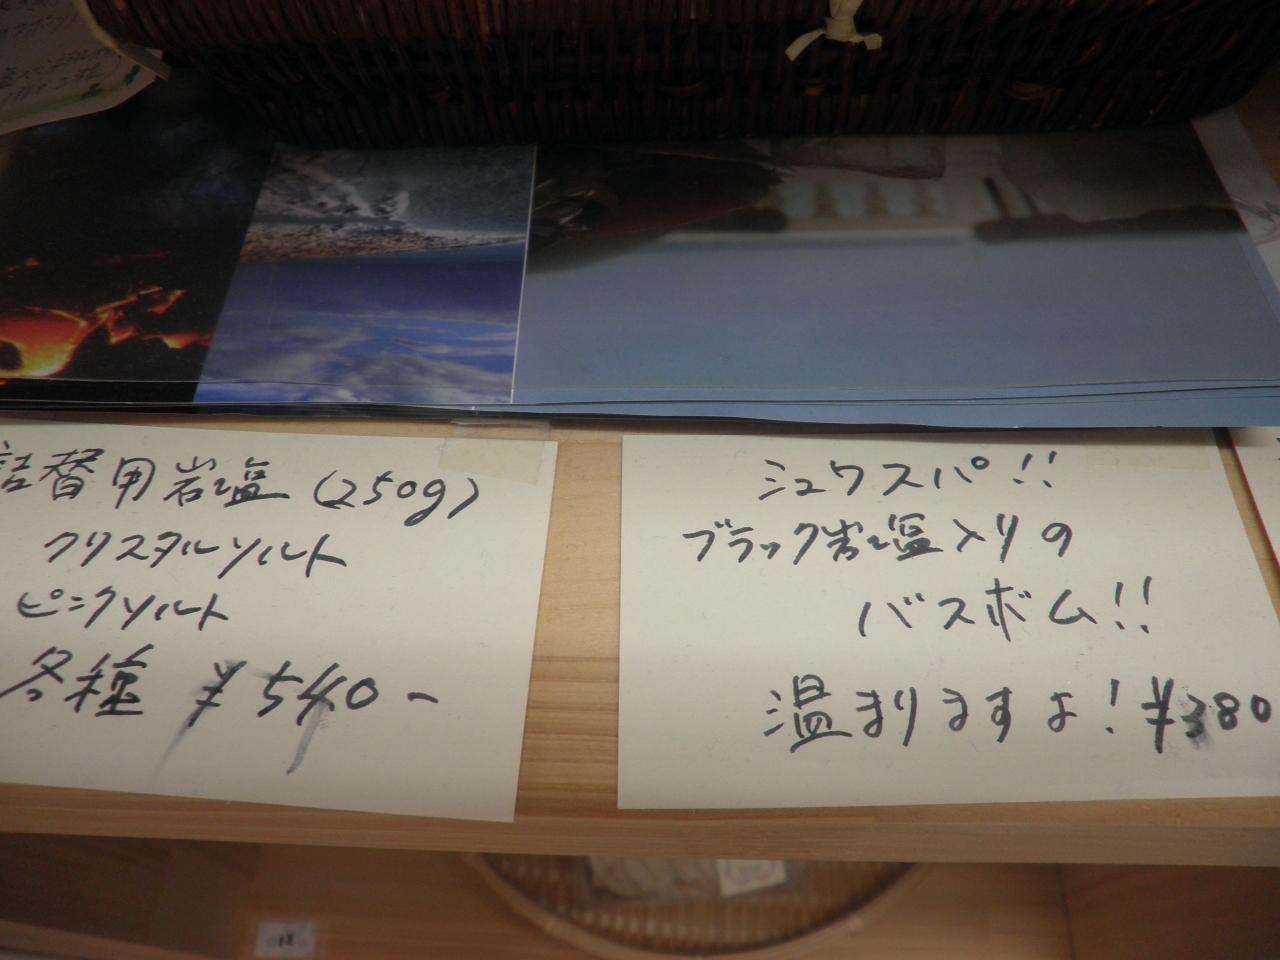 詰替用岩塩(250g)
クリスタルソルト
ピンクソルト
各種 ¥540-
シュワスパ!!
ブラック岩塩入りの
バスボム!!
温まりますよ!¥380